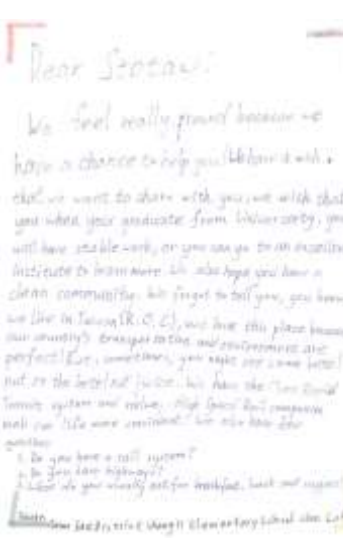 Dear
We feel really proud because we
have a chance to help you! We have a wish,
that we want to share with you, we wish that
you when your graduate from University, you
will have stable work, or you can go to an excellent
institute to learn more. We also hope you have a
clean community. We forget to tell you, you know
we live in Taiwan (R.O.C), we love this place because
our country's transportation and environment are
perfect! But, sometimes, you might see some betel
nut or the betel nut juice. We have the Rapid
system and High Speed Rail
can life more convenient. We also have
1. Do you have a rail system?
2. Do you have highways?
3. What do you usually eat for breakfast, lunch and
District Elementary School